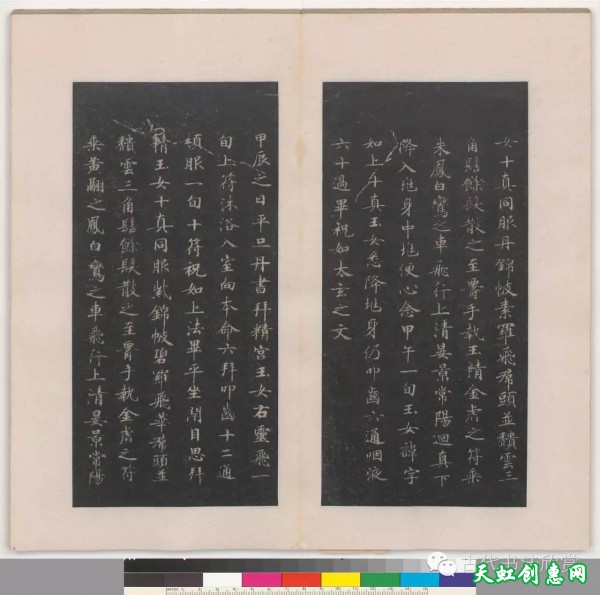 女十真同服丹錦帔素羅飛帬頭並積雲三
角髻餘髮散之至膺手執玉精金虎之符乘
朱鳳白鸞之車飛行上清晏景常陽迴真下
降入地身中地便心念甲午一旬玉女諱字
如上午真玉女悉降地身仍叩齒六通咽液
六十過畢祝如太玄之文
甲辰之日平旦丹書拜精宮玉女右靈飛一
旬上符沐浴入室向本命六拜叩齒十二通
頓服一旬十符祝如上法畢平坐閉目思拜
精玉女十真同服紫錦帔碧羅飛華帬頭並
積雲三角髻餘髮散之至膺手執金虎之符
乘黃翮之鳳白鸞之車飛行上清晏景常陽
古代书法欣赏
天虹创惠网